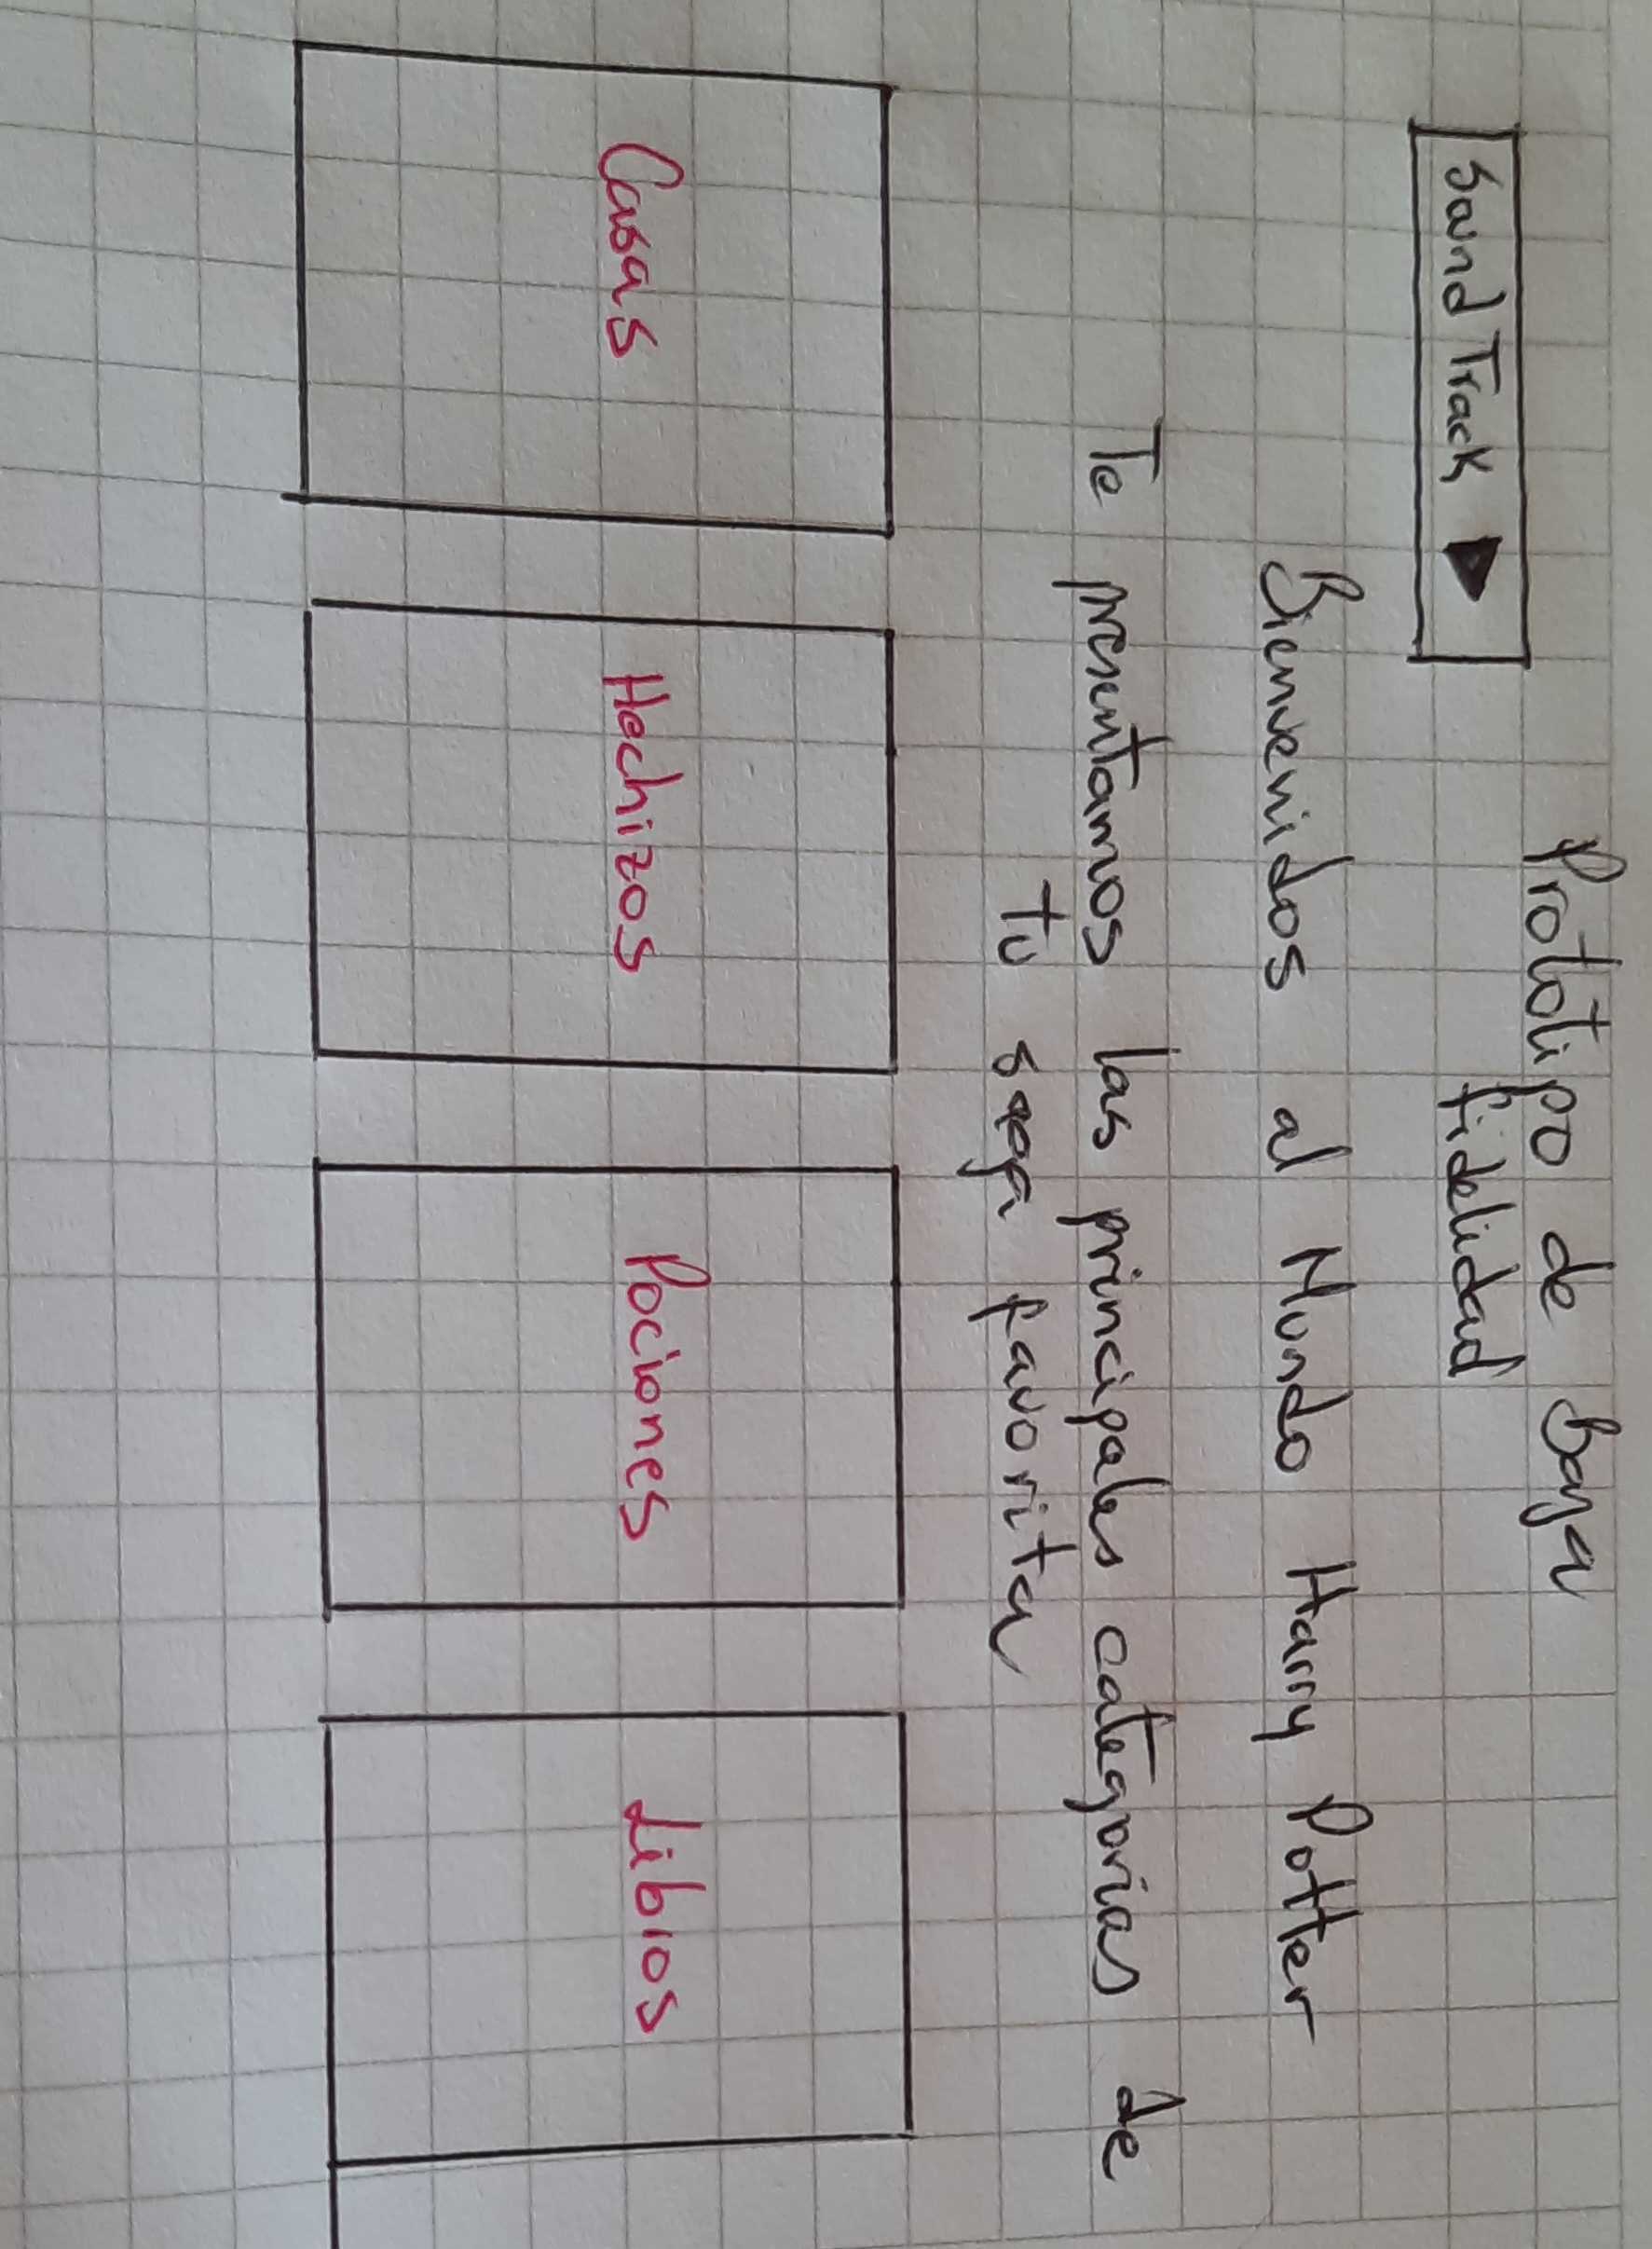 Prototipo de Baja
fidelidad
Sound Track
Bienvenidos al Mundo Harry Potter
Te presentamos las principales categorias de
tu saga favorita
Casas
Hechizos
Pociones
Libros